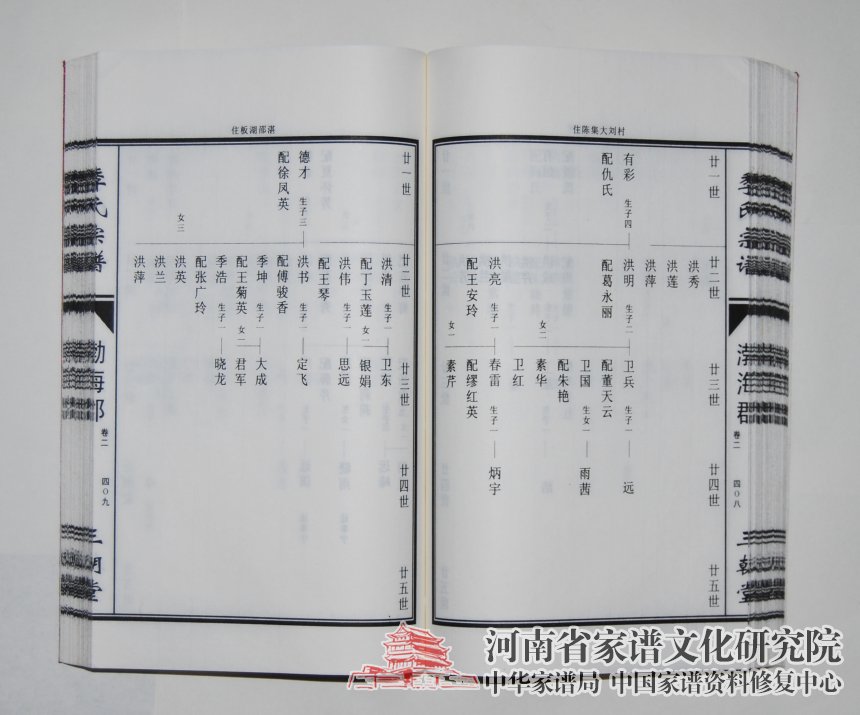 季氏宗谱
渤海郡
卷二
四〇八
三朝堂
住陈集大刘村
廿一世
廿二世
廿三世
廿四世
廿五世
洪秀
洪莲
洪萍
有彩 生子四
配仇氏
洪明 生子二
配葛永丽
卫兵 生子一 远
配董天云
卫国 生女一 雨茜
配朱艳
女二
素华
卫红
洪亮 生子一
配王安玲
春雷 生子一 炳宇
配缪红英
女一
素芹
住板湖邵湛
廿一世
廿二世
廿三世
廿四世
廿五世
德才 生子三
配徐凤英
洪清 生子一 卫东
配丁玉莲 女一 银娟
洪伟 生子一 思远
配王琴
洪书 生子一 定飞
配傅骏香
季坤 生子一 大成
配王菊英 女一 君军
季浩 生子一 晓龙
配张广玲
女三
洪英
洪兰
洪萍
季氏宗谱
渤海郡
卷二
四〇九
三朝堂
河南省家谱文化研究院
中华家谱局 中国家谱资料修复中心